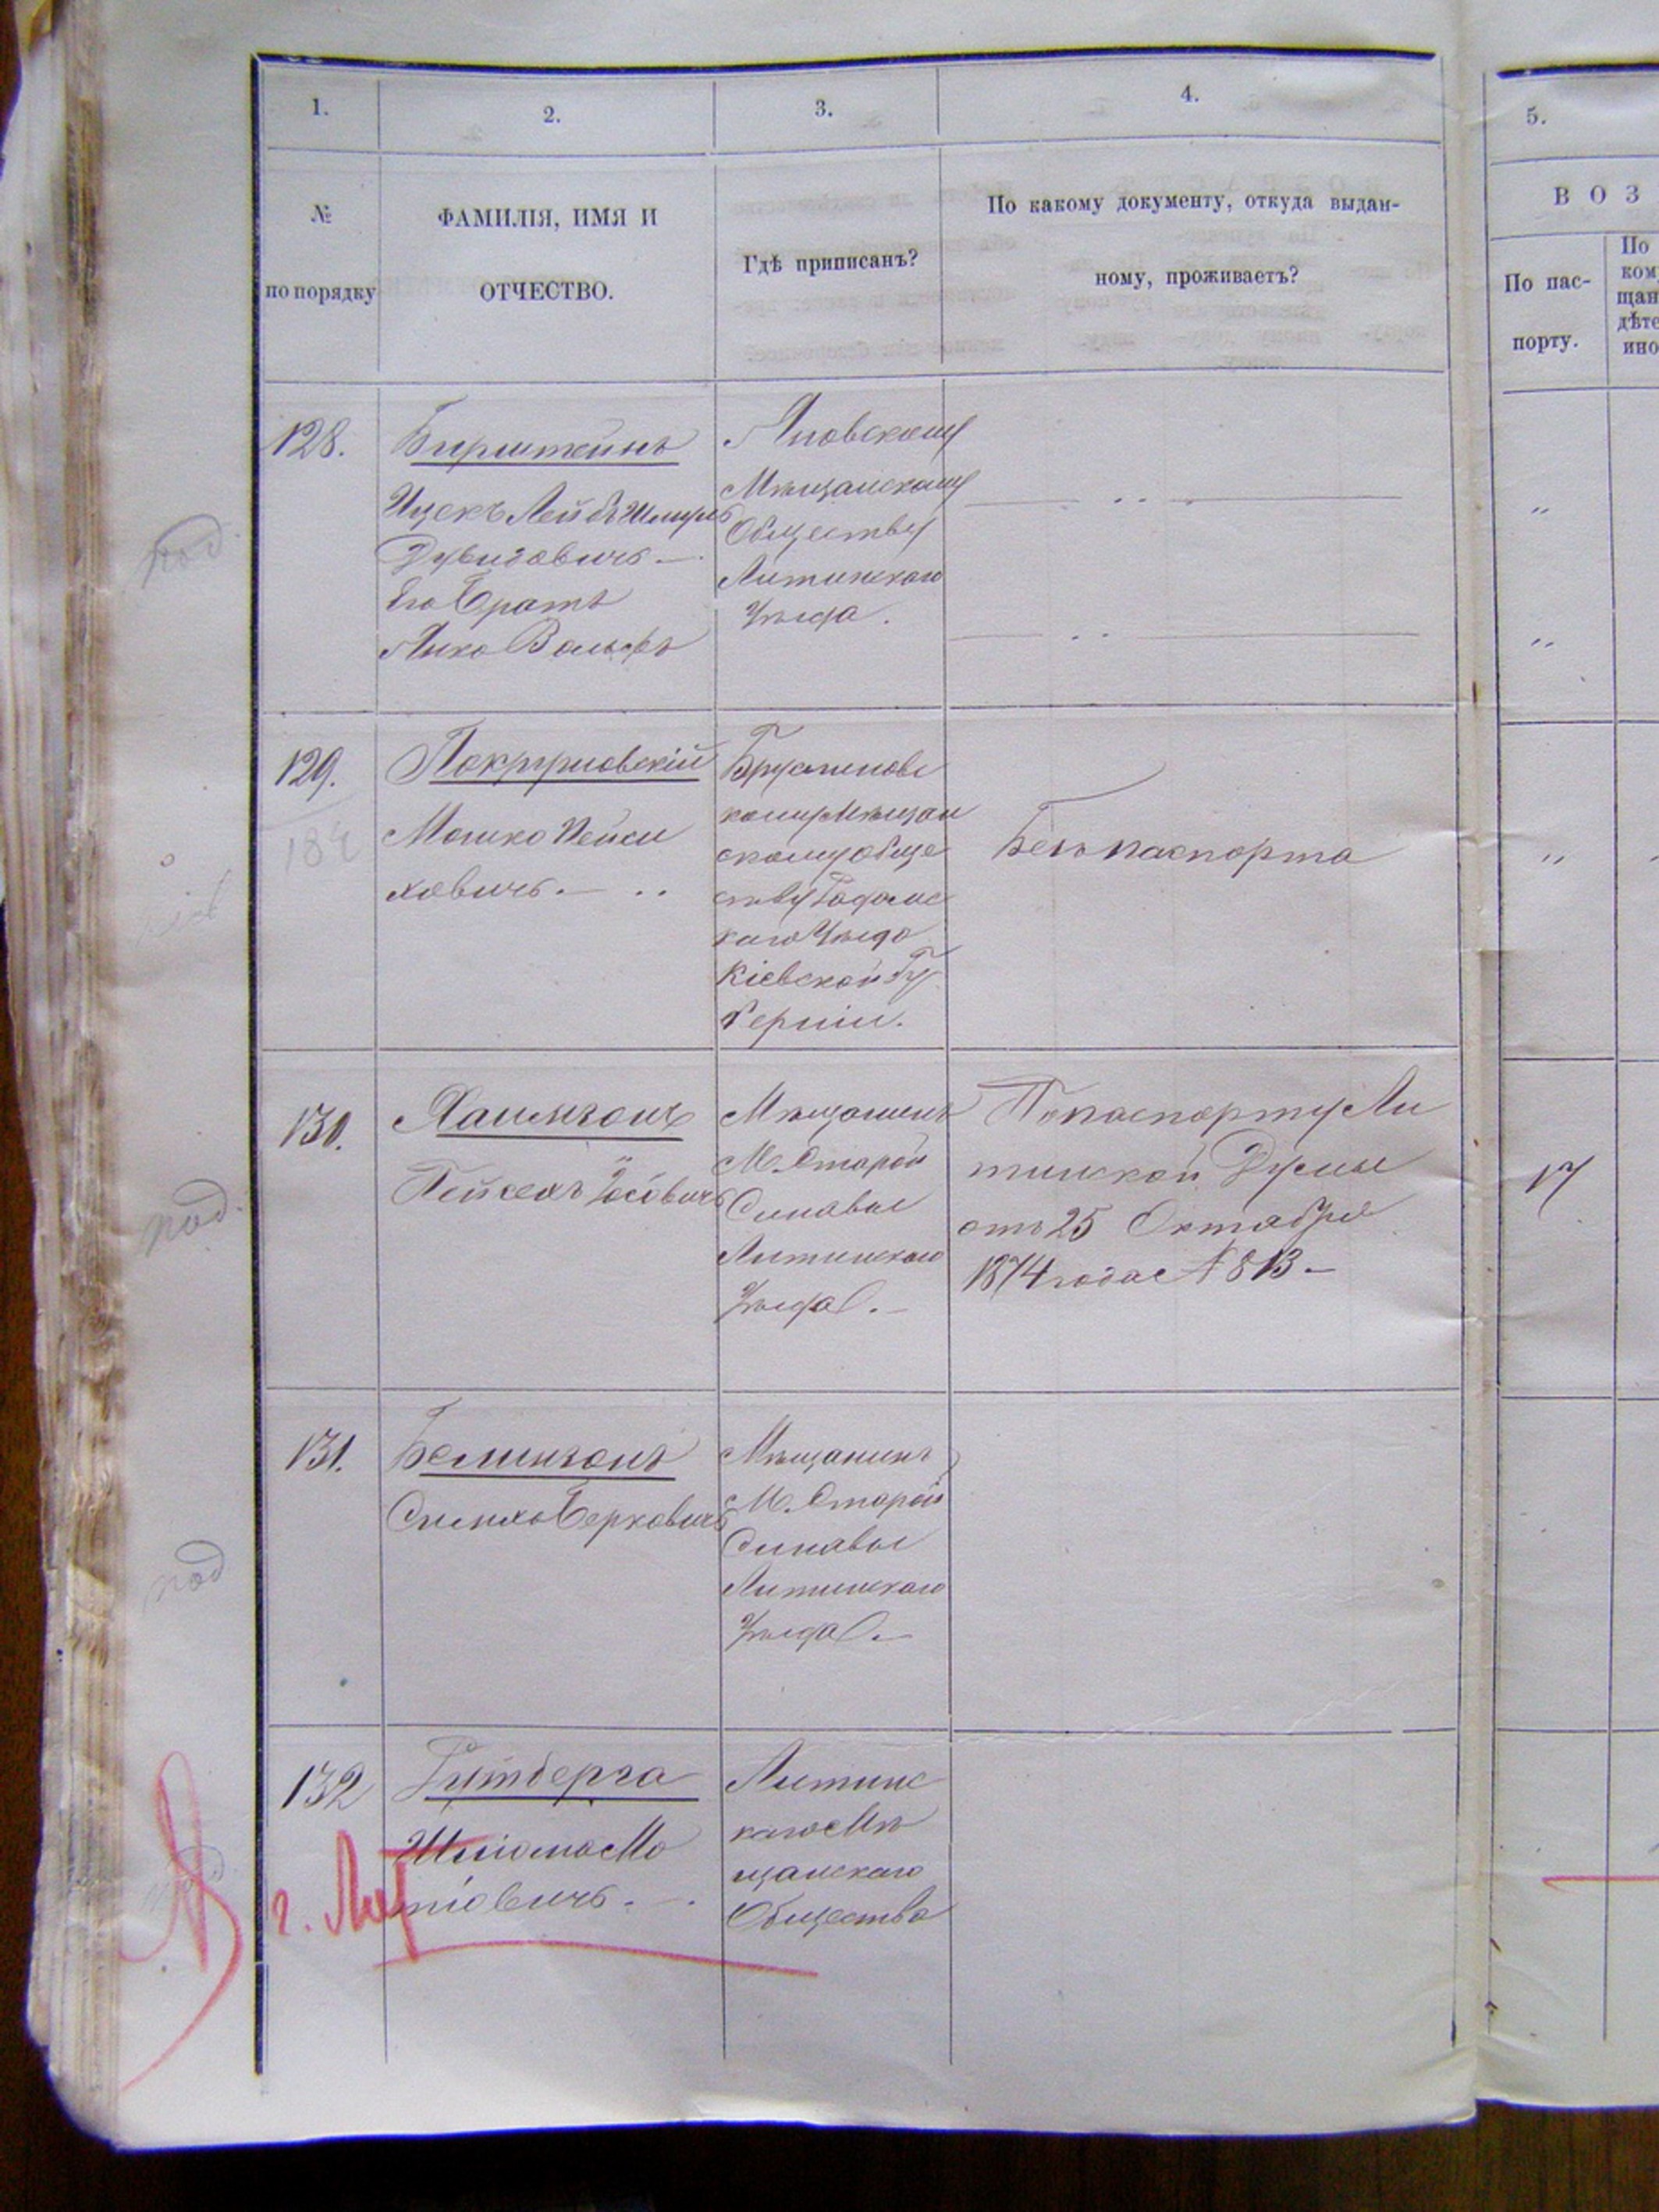 1.
2.
3.
4.
5.
№
по порядку
ФАМИЛІЯ, ИМЯ И
ОТЧЕСТВО.
Гдѣ приписанъ?
По какому документу, откуда выдан-
ному, проживаетъ?
ВОЗ
По пас-
порту.
По
ком
щан
дѣте
ино
128.
Бирштейнъ
Ицекъ Лейбъ Шмуль
Дувидовичъ —
Его братъ
Янко Вольфъ
Яновскому
Мѣщанскому
Обществу
Литинскаго
Уѣзда.
"
"
129.
Мошко Пейса
ховичъ. — ..
Брусилов
кому Мѣщан
скому обще
ству Радомс
каго Уѣзда
Кіевской Гу
берніи.
Безъ паспорта
"
130.
Хаимзонъ
Пейсахъ Іосовичъ
Мѣщанинъ
М. Старой
Синявы
Литинскаго
Уѣзда. —
По паспорту Ли
тинской Думы
отъ 25 Октября
1874 года № 813 —
17
под
131.
Белинзонъ
Симха Берковичъ
Мѣщанинъ
М. Старой
Синявы
Литинскаго
Уѣзда. —
под
132
Гутберга
Шлiома Мо
тiовичъ. —.
Литинс
каго Мѣ
щанскаго
Общества
г. Лит